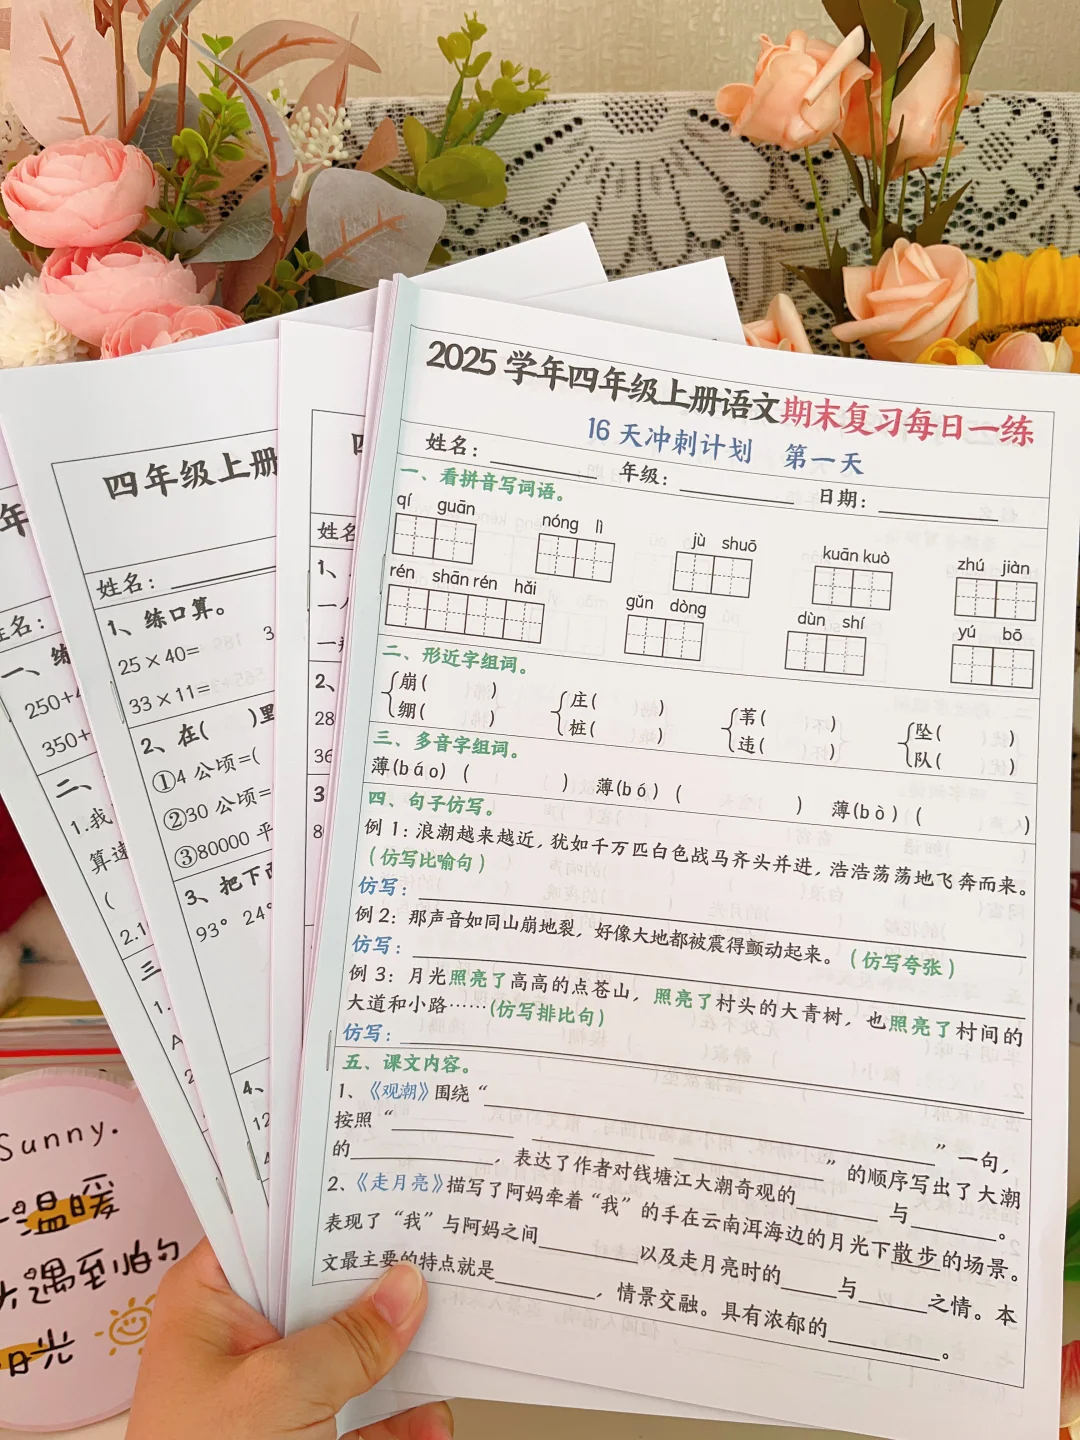 2025 学年四年级上册语文期末复习每日一练
16 天冲刺计划 第一天
姓名： 年级： 日期：
一、看拼音写词语。
qí guān nóng lì jù shuō kuān kuò zhú jiàn
rén shān rén hǎi gǔn dòng dùn shí yú bō
二、形近字组词。
崩( ) 庄( ) 苇( ) 坠( )
绷( ) 桩( ) 违( ) 队( )
三、多音字组词。
薄(báo)( ) 薄(bó)( ) 薄(bò)( )
四、句子仿写。
例 1：浪潮越来越近，犹如千万匹白色战马齐头并进，浩浩荡荡地飞奔而来。
(仿写比喻句)
仿写：
例 2：那声音如同山崩地裂，好像大地都被震得颤动起来。(仿写夸张)
仿写：
例 3：月光照亮了高高的点苍山，照亮了村头的大青树，也照亮了村间的
大道和小路……(仿写排比句)
仿写：
五、课文内容。
1、《观潮》围绕“ ”一句，
按照“ ”的顺序写出了大潮
的 ，表达了作者对钱塘江大潮奇观的 与 。
2、《走月亮》描写了阿妈牵着“我”的手在云南洱海边的月光下散步的场景。
表现了“我”与阿妈之间 以及走月亮时的 与 之情。本
文最主要的特点就是 ，情景交融。具有浓郁的 。
四年级上册
姓名：
1、练口算。
25×40=
33×11=
2、在( )里
①4 公顷=(
②30 公顷=
③80000 平
3、把下
93° 24°
4、
12
姓名
1、
2、
28
36
3
8
年
姓名：
一、练
250+4
350+
二、
1.我
算速
(
2.1
三
1.
A
2
Sunny.
温暖
遇到怕句
日光